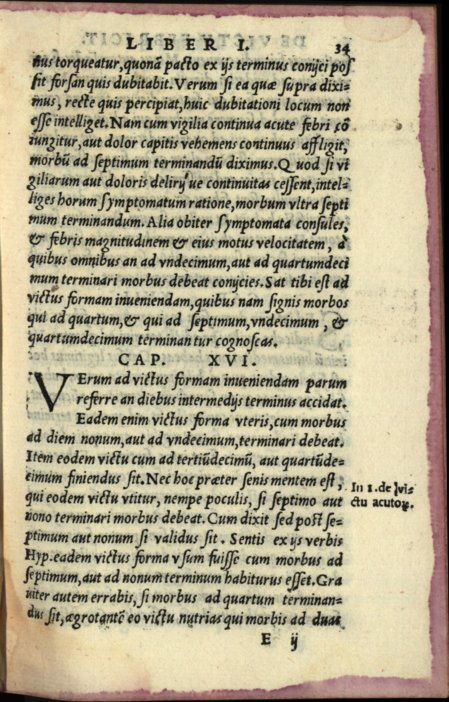 LIBER I. 34
nus torqueatur, quonā pacto ex ijs terminus conijci pos
sit forsan quis dubitabit. Verum si ea quæ supra dixi-
mus, recte quis percipiat, huic dubitationi locum non
esse intelliget. Nam cum vigilia continua acute febri cō
iungitur, aut dolor capitis vehemens continuus affligit,
morbū ad septimum terminandū diximus. Quod si vi
giliarum aut doloris delirij ue continuitas cessent, intel-
liges horum symptomatum ratione, morbum vltra septi
mum terminandum. Alia obiter symptomata consules,
& febris magnitudinem & eius motus velocitatem, à
quibus omnibus an ad vndecimum, aut ad quartumdeci
mum terminari morbus debeat conijcies. Sat tibi est ad
victus formam inueniendam, quibus nam signis morbos
qui ad quartum, & qui ad septimum, vndecimum, &
quartumdecimum terminantur cognoscas.
CAP. XVI.
VErum ad victus formam inueniendam parum
referre an diebus intermedijs terminus accidat.
Eadem enim victus forma vteris, cum morbus
ad diem nonum, aut ad vndecimum, terminari debeat.
Item eodem victu cum ad tertiūdecimū, aut quartūde-
cimum finiendus sit. Nec hoc præter senis mentem est,
qui eodem victu vtitur, nempe poculis, si septimo aut
nono terminari morbus debeat. Cum dixit sed post se-
ptimum aut nonum si validus sit. Sentis ex ijs verbis
Hyp. eadem victus forma vsum fuisse cum morbus ad
septimum, aut ad nonum terminum habiturus esset. Gra
uiter autem errabis, si morbus ad quartum terminan-
dus sit, ægrotantē eo victu nutrias qui morbis ad duas
In 1. de vi-
ctu acutoꝝ.
E ij